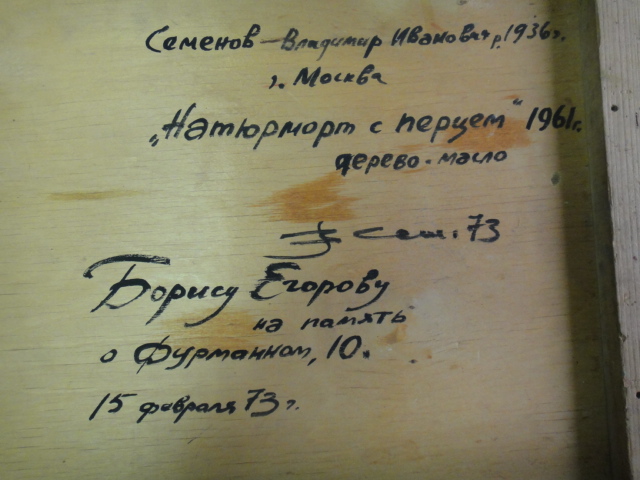 Семенов – Владимир Иванович р. 1936 г.
г. Москва
„Натюрморт с перцем“ 1961 г.
дерево-масло
Сем. 73
Борису Егорову
на память
о Фурманном, 10.
15 февраля 73 г.